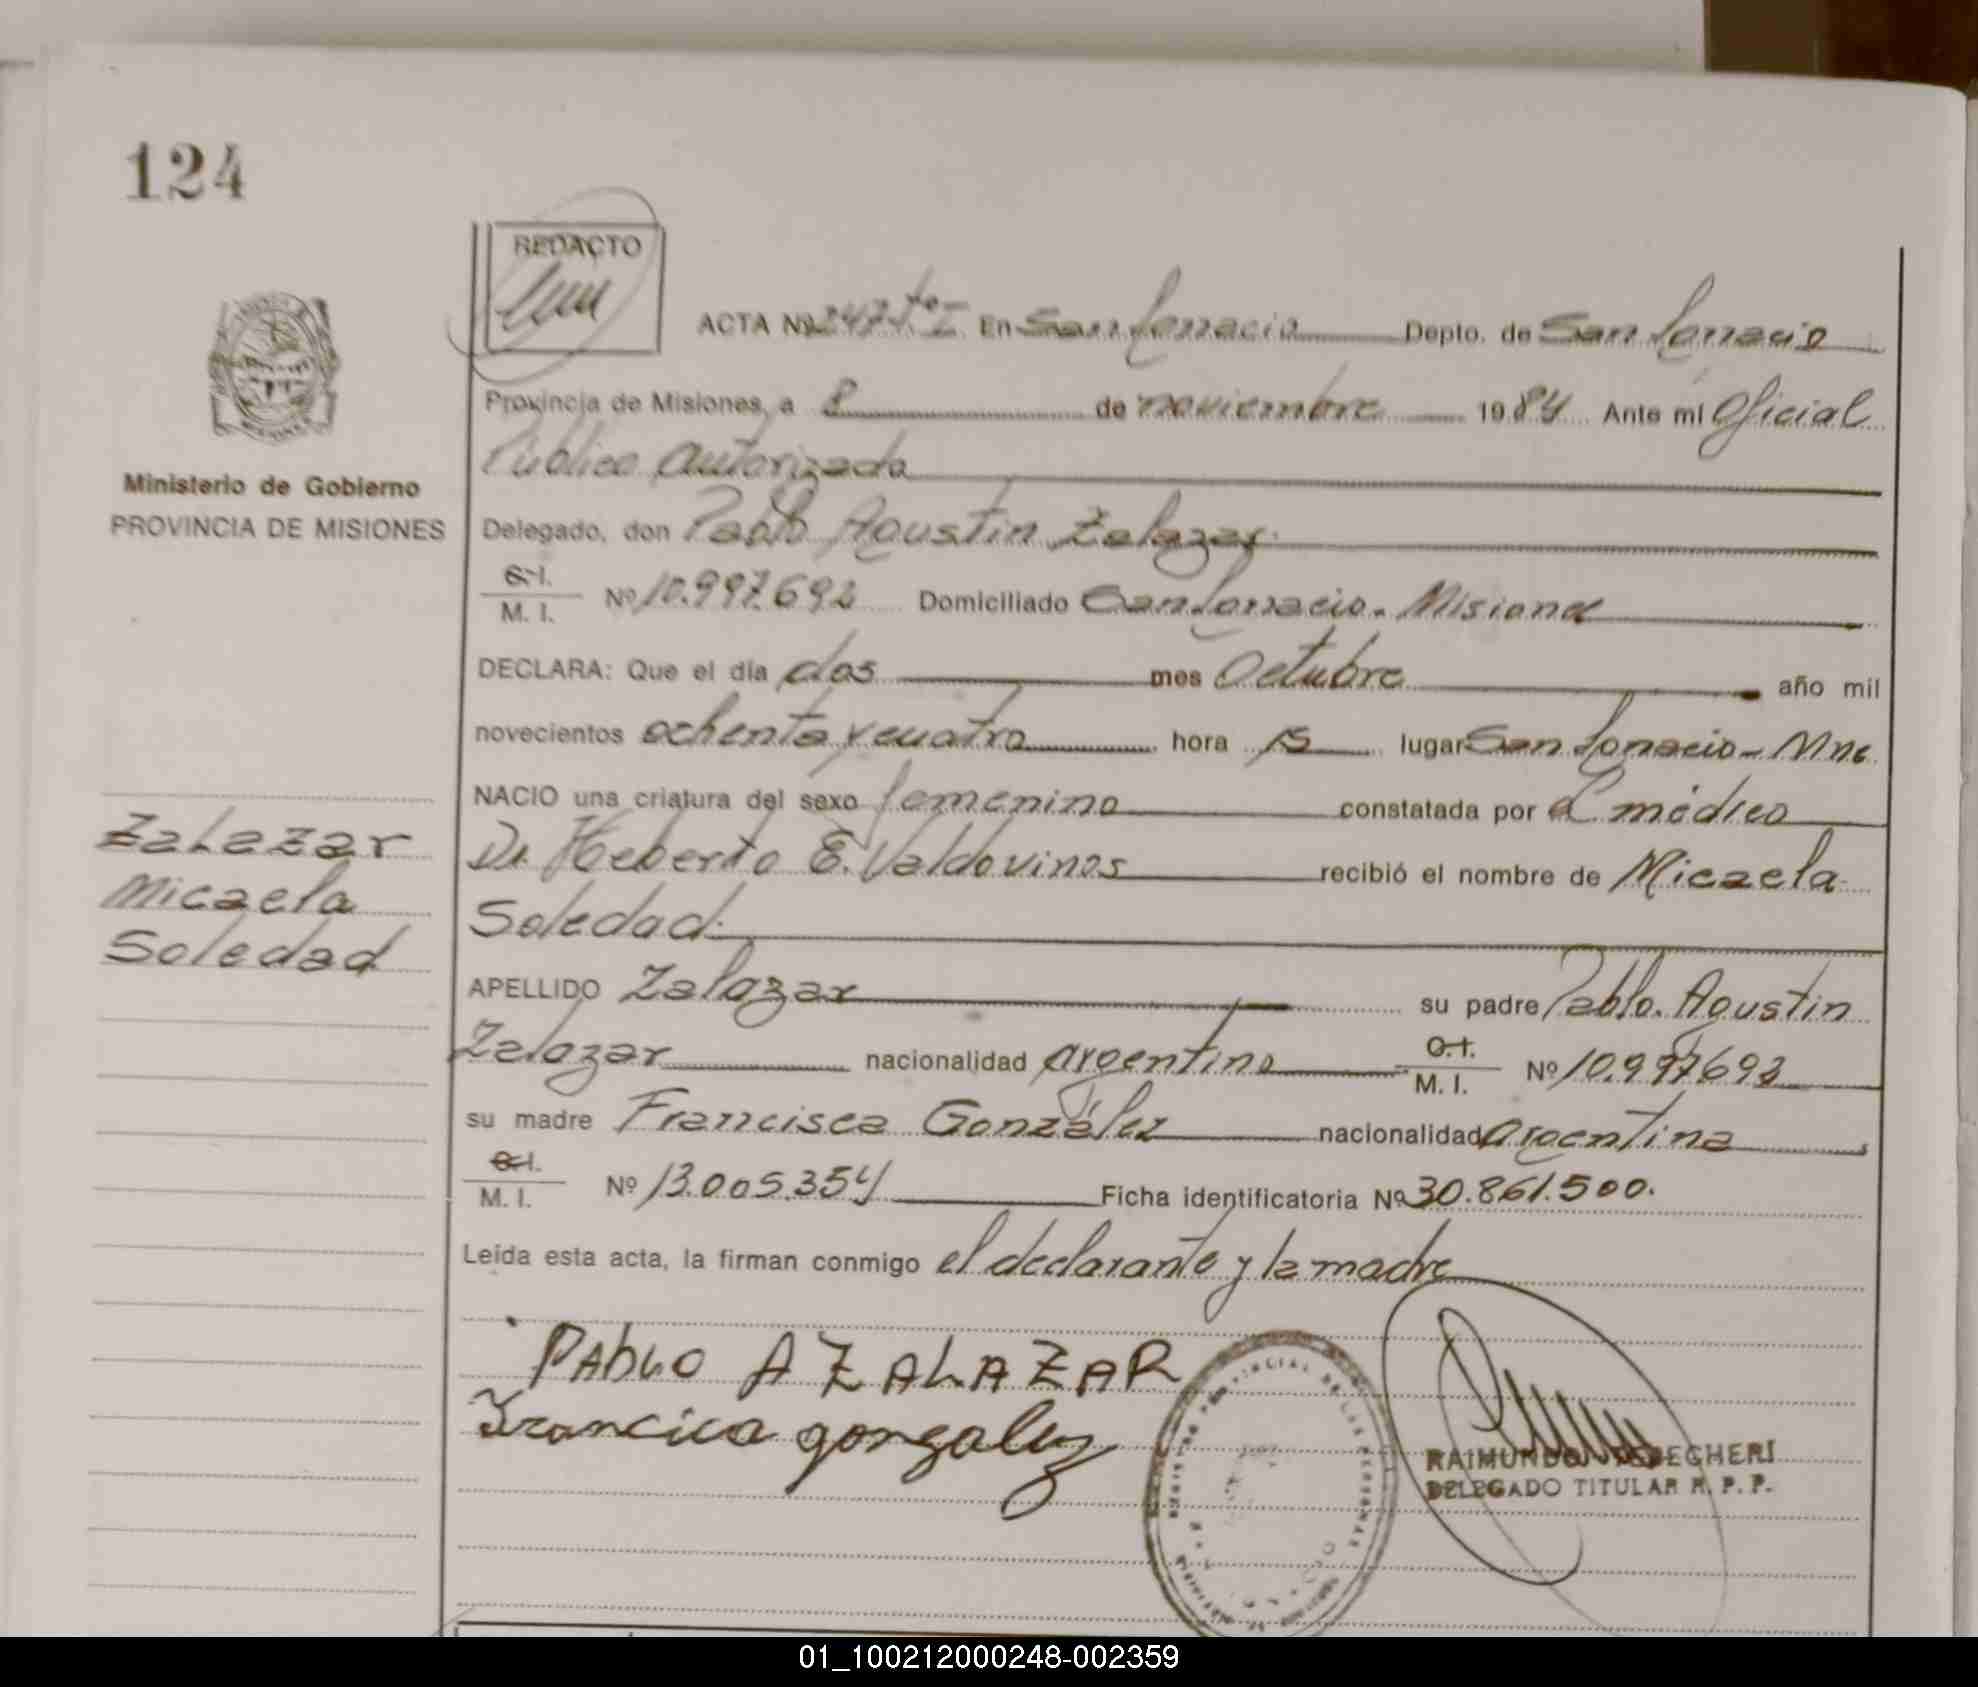 124
REDACTO
ACTA Nº 247 tº I En San Ignacio Depto. de San Ignacio
Provincia de Misiones, a 8 de noviembre 1984 Ante mi Oficial
Público Autorizado
Ministerio de Gobierno
PROVINCIA DE MISIONES
Delegado, don Pablo Agustin Zalazar
C. I.
M. I. Nº 10.997.693 Domiciliado San Ignacio - Misiones
DECLARA: Que el día dos mes Octubre año mil
novecientos ochenta y cuatro hora 15 lugar San Ignacio - Mnes
NACIO una criatura del sexo femenino constatada por el médico
Dr. Heberto E. Valdovinos recibió el nombre de Micaela
Soledad
Zalazar
Micaela
Soledad
APELLIDO Zalazar su padre Pablo Agustin
Zalazar nacionalidad argentino C. I.
M. I. Nº 10.997.693
su madre Francisca González nacionalidad argentina
C. I.
M. I. Nº 13.005.354 Ficha identificatoria Nº 30.861.500.
Leída esta acta, la firman conmigo el declarante y la madre
PAbLO A ZALAZAR
Francica gonzalez
DELEGADO TITULAR R. P. P.
01_100212000248-002359